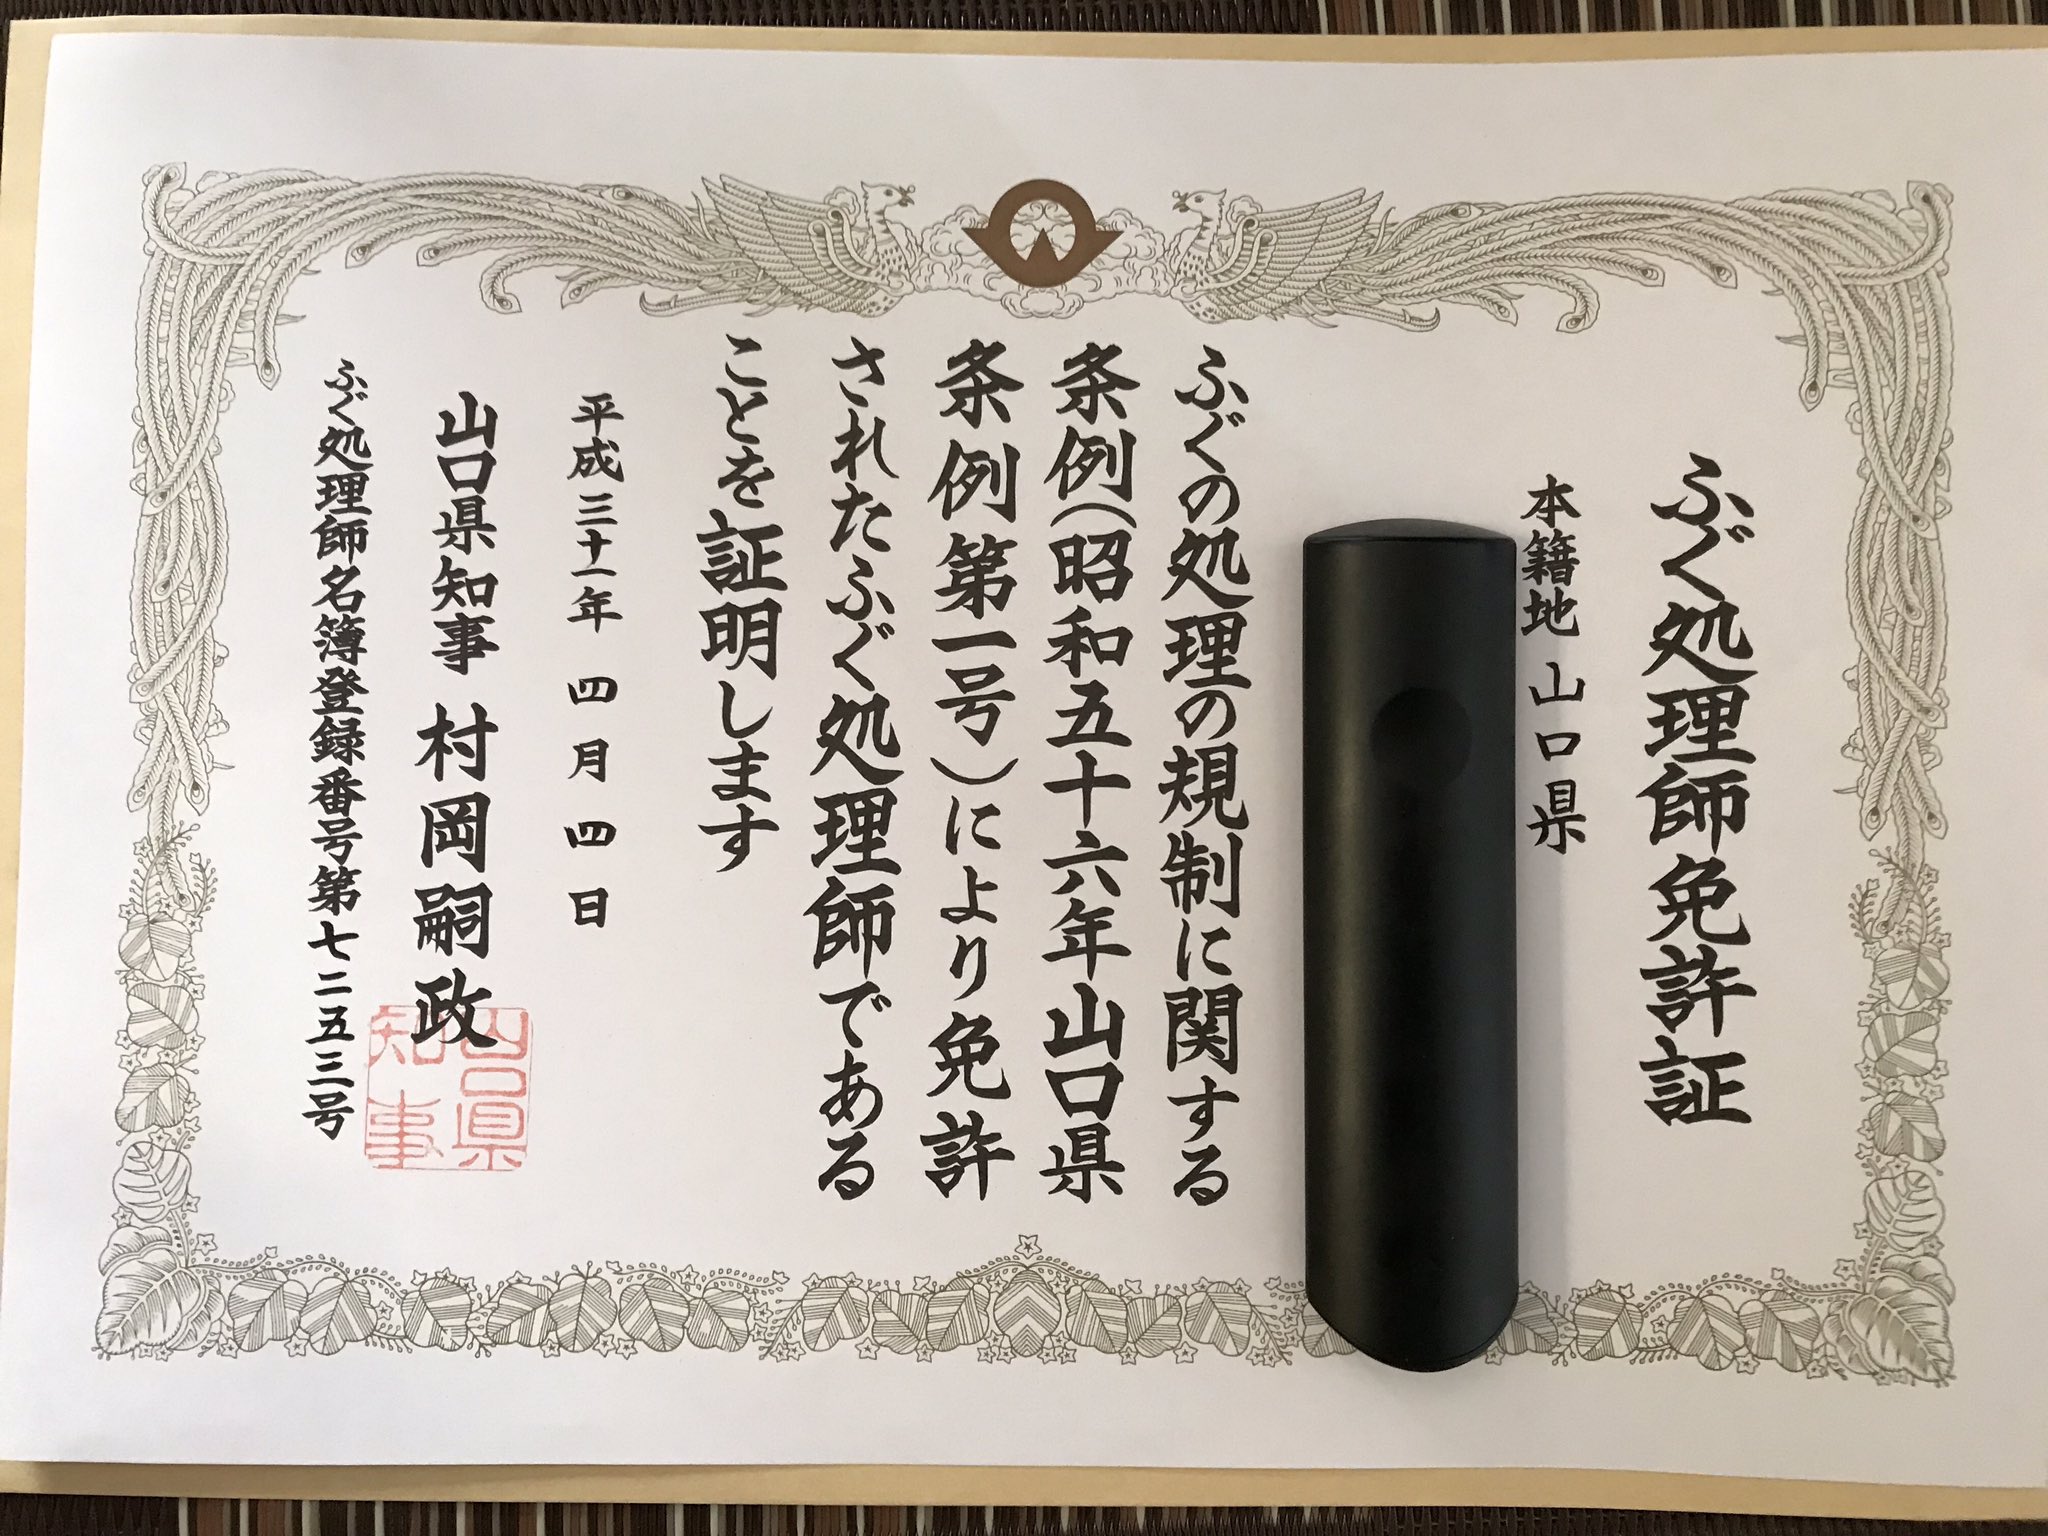 ふぐ処理師免許証
本籍地 山口県
ふぐの処理の規制に関する
条例(昭和五十六年山口県
条例第一号)により免許
されたふぐ処理師である
ことを証明します
平成三十一年 四月 四日
山口県知事 村岡嗣政
山口県
知事
ふぐ処理師名簿登録番号第七二五三号